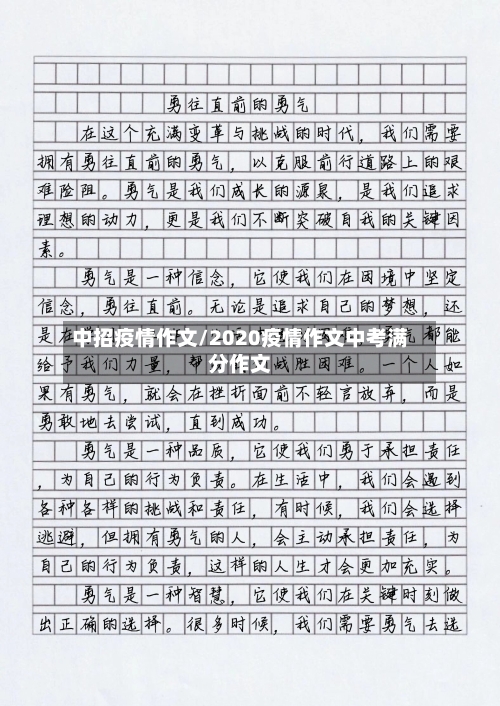 勇往直前的勇气
在这个充满变革与挑战的时代，我们需要
拥有勇往直前的勇气，以克服前行道路上的艰
难险阻。勇气是我们成长的源泉，是我们追求
理想的动力，更是我们不断突破自我的关键因
素。
勇气是一种信念，它使我们在困境中坚定
信念，勇往直前。无论是追求自己的梦想，还
中招疫情作文/2020疫情作文中考满
分作文
是在 气都能
给予我们力量，帮 战胜困难。一个人如
果有勇气，就会在挫折面前不轻言放弃，而是
勇敢地去尝试，直到成功。
勇气是一种品质，它使我们勇于承担责任
，为自己的行为负责。在生活中，我们会遇到
各种各样的挑战和责任，有时候，我们会选择
逃避，但拥有勇气的人，会主动承担责任，为
自己的行为负责，这样的人生才会更加充实。
勇气是一种智慧，它使我们在关键时刻做
出正确的选择。很多时候，我们需要勇气去选